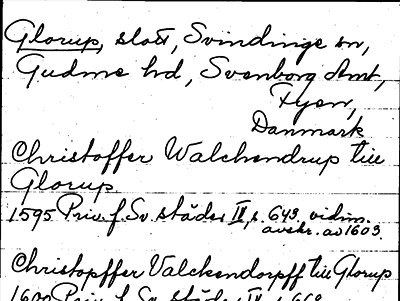 Glorup, slott, Svindinge sn,
Gudme hd, Svenborg Amt,
Fyen,
Danmark
Christoffer Walchendrup till
Glorup
1595 Priv. f. Sv. städer IV, s. 643, vidim.
avskr. av 1603.
Christopffer Valckendorpff till Glorup
1600 Priv. f. Sv. städer IV, s. 668